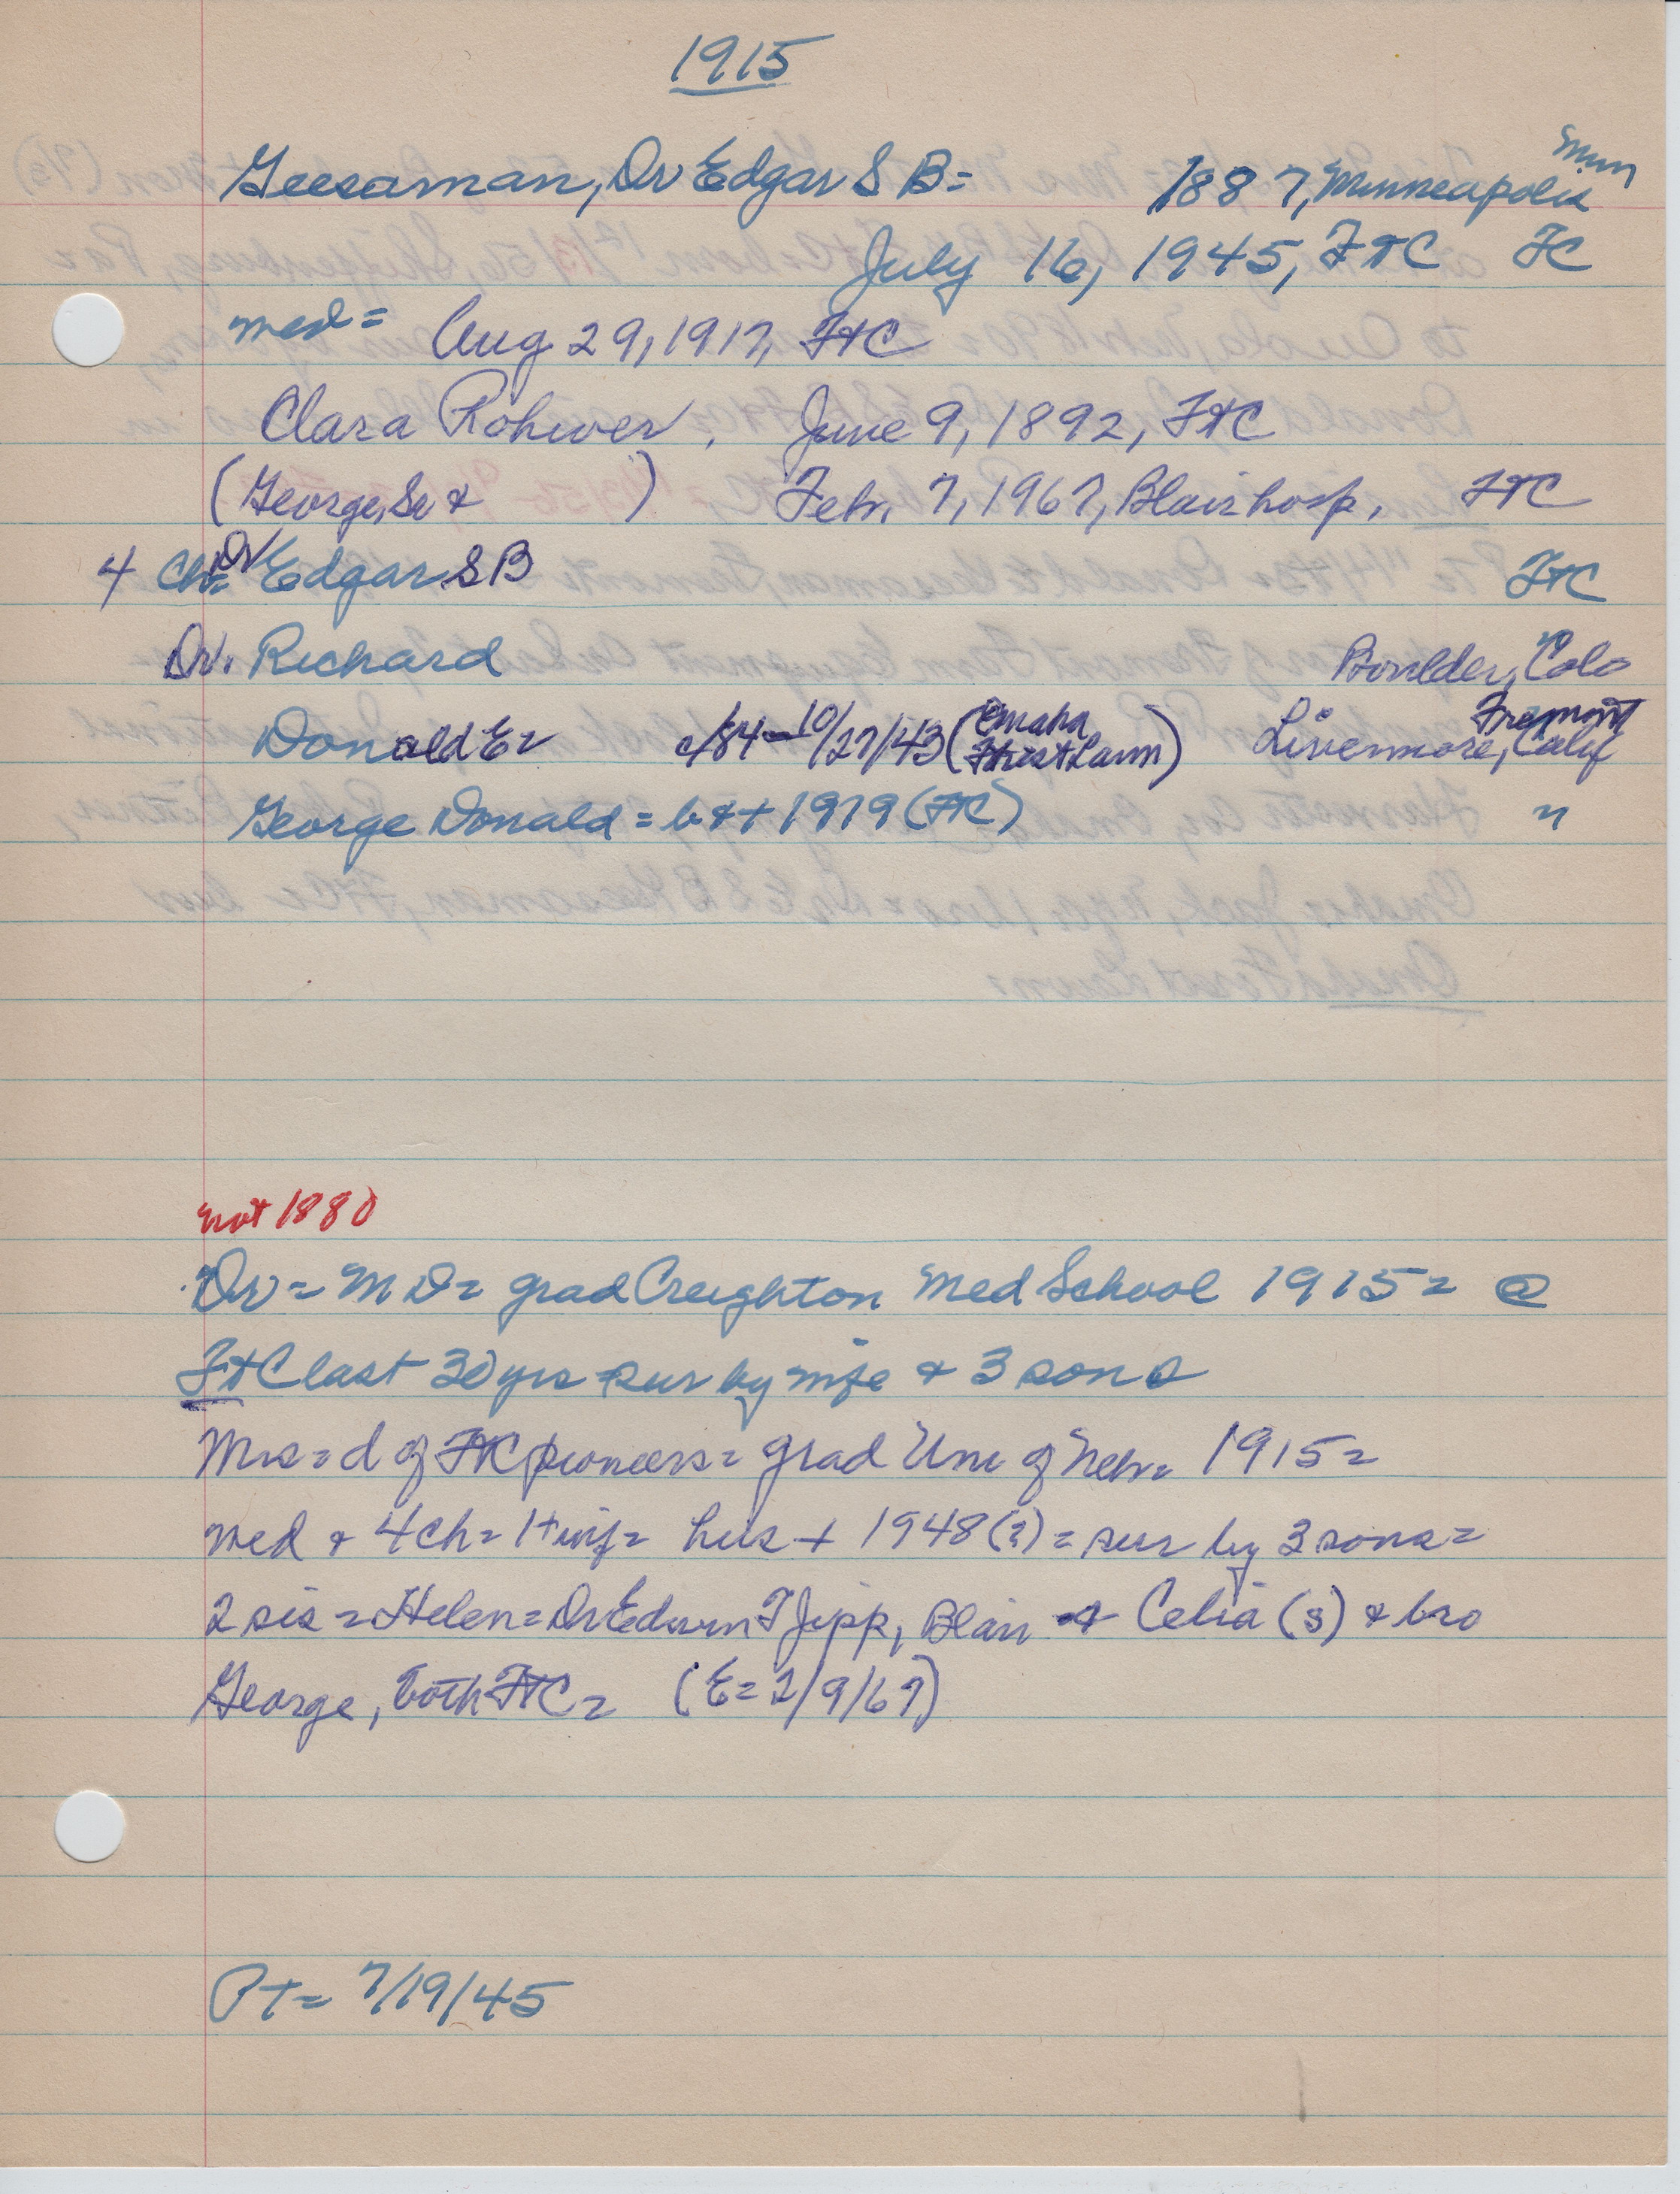 1915
Geesaman, Dr Edgar S B = 1887, Minneapolis Minn
July 16, 1945, FtC FC
med = Aug 29, 1917, FtC
Clara Rohwer, June 9, 1892, FtC
(George, Sr & ) Feb. 7, 1967, Blair hosp, FtC
4 Ch = Dr Edgar S B FtC
Dr. Richard Boulder, Colo
Donald E = c/84 - 10/27/43 (Omaha Forest Lawn) Livermore, Calif Fremont
George Donald = b & + 1919 (FtC) "
not 1880
Dr = M D = grad Creighton Med School 1915 = @
FtC last 30 yrs = sur by wife & 3 sons
Mrs = d of FtC pioneers = grad Uni of Neb = 1915 =
med & 4 ch = 1 + inf = hus + 1948 (?) = sur by 3 sons =
2 sis = Helen = Dr Edwin T Jipp, Blair & Celia (s) & bro
George, both FtC = (E = 2/9/67)
PT = 7/19/45